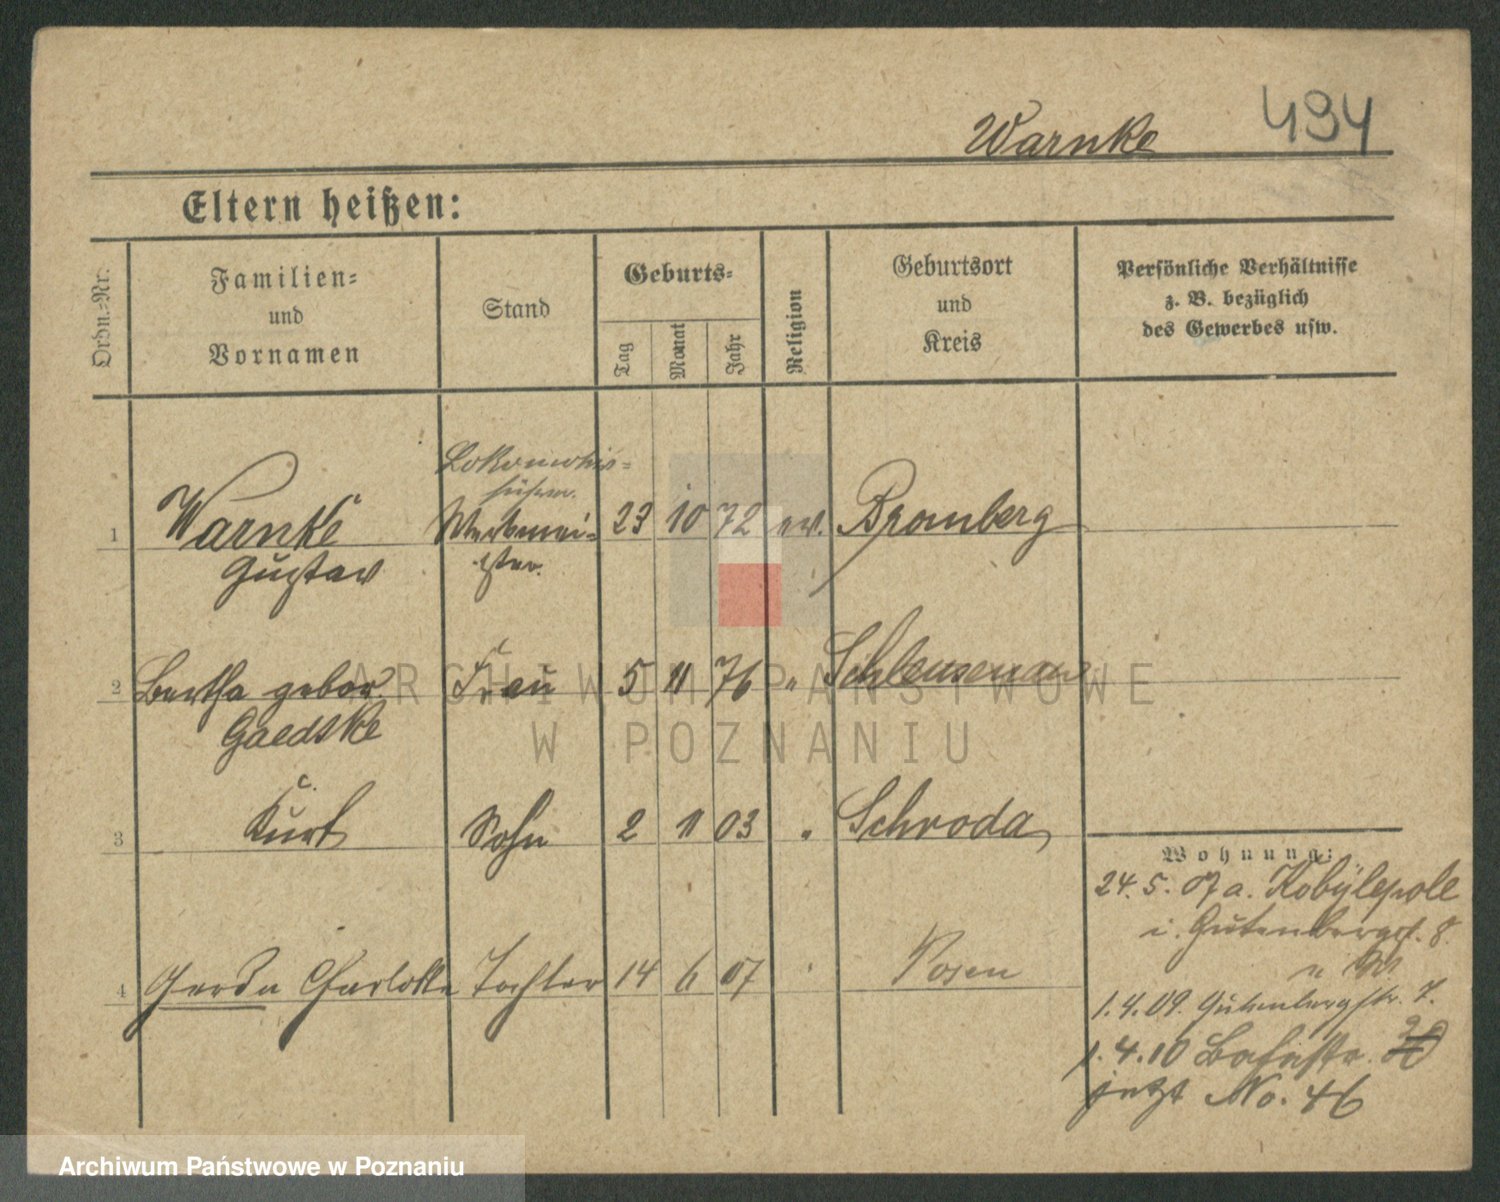 Warnke 494
Eltern heißen:
Ordn.-Nr.
Familien-
und
Vornamen
Stand
Geburts-
Tag
Monat
Jahr
Religion
Geburtsort
und
Kreis
Persönliche Verhältnisse
z. B. bezüglich
des Gewerbes usw.
Lokomotiv-
1 Warnke Werkmei- 23 10 72 ev. Bromberg
Gustav ster.
2 Bertha gebor. Frau 5 11 76 " Schleusenau
Gaedtke
3 Kurt Sohn 2 11 03 " Schroda
4 Gerda Charlotte Tochter 14 6 07 " Posen
Wohnung:
24. 5. 07 a. Kobylepole
i. Gutenbergst. 8.
1. 4. 09. Gutenbergstr. 7.
1. 4. 10
jetzt No. 46
ARCHIWUM PAŃSTWOWE
W POZNANIU
Archiwum Państwowe w Poznaniu